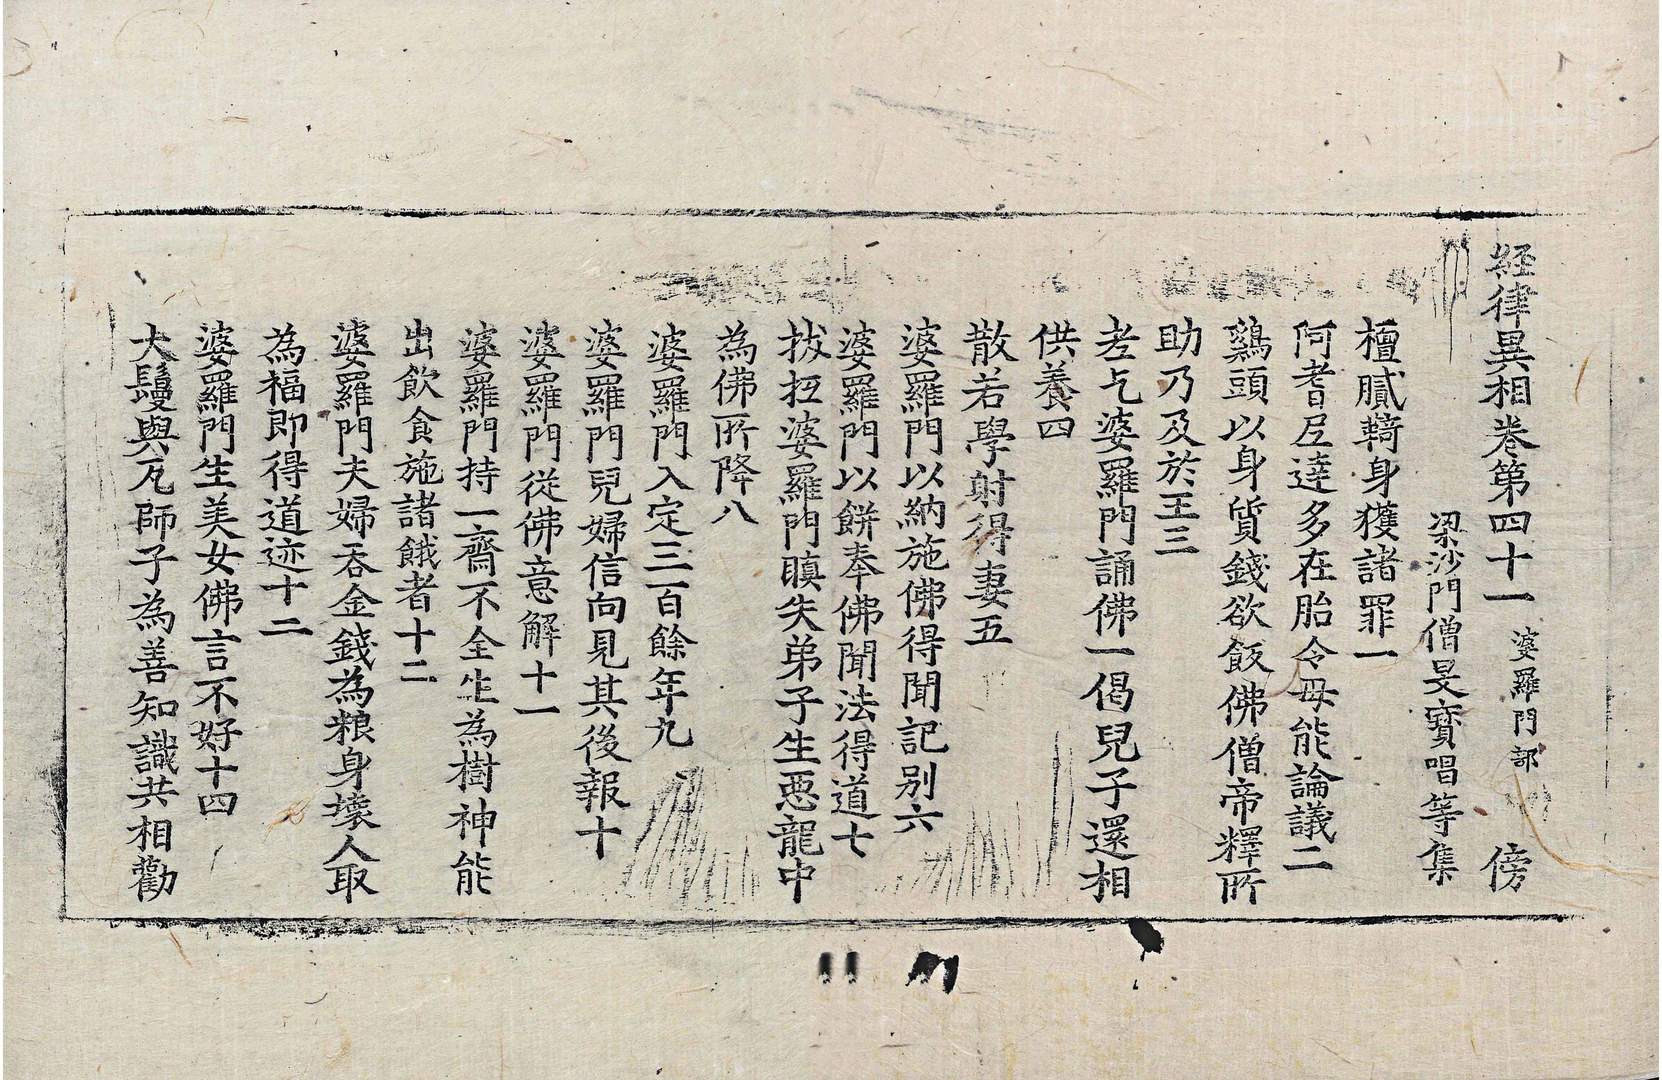 経律異相卷第四十一 婆羅門部 傍
梁沙門僧旻寶唱等集
檀膩䩭身獲諸罪一
阿耆尼達多在胎令母能論議二
鷄頭以身質錢欲飯佛僧帝釋所
助乃及於王三
老乞婆羅門誦佛一偈兒子還相
供養四
散若學射得妻五
婆羅門以納施佛得聞記别六
婆羅門以餅奉佛聞法得道七
拔抂婆羅門瞋失弟子生惡龍中
為佛所降八
婆羅門入定三百餘年九
婆羅門兒婦信向見其後報十
婆羅門從佛意解十一
婆羅門持一齋不全生為樹神能
出飲食施諸餓者十二
婆羅門夫婦吞金錢為粮身壞人取
為福即得道迹十二
婆羅門生美女佛言不好十四
大髲與凡師子為善知識共相勸